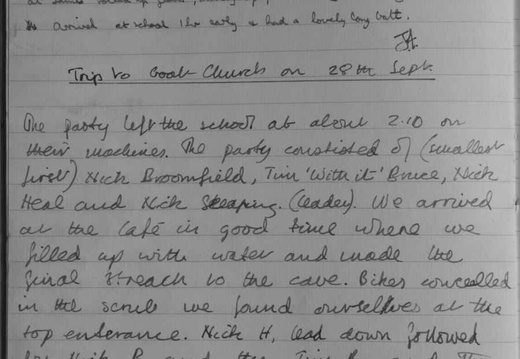 arrived at school 1 hr early & had a lovely long
Trip to Goat Church on 28th Sept.
The party left the school at about 2.10 on
their machines. The party constisted of (smallest
first) Nick Broomfield, Tim 'With it' Bruce, Nick
Heal and Nick (leader). We arrived
at the café in good time where we
filled up with water and made the
final streach to the cave. Bikes concealled
in the scrub we found ourselves at the
top enterance. Nick H, lead down followed